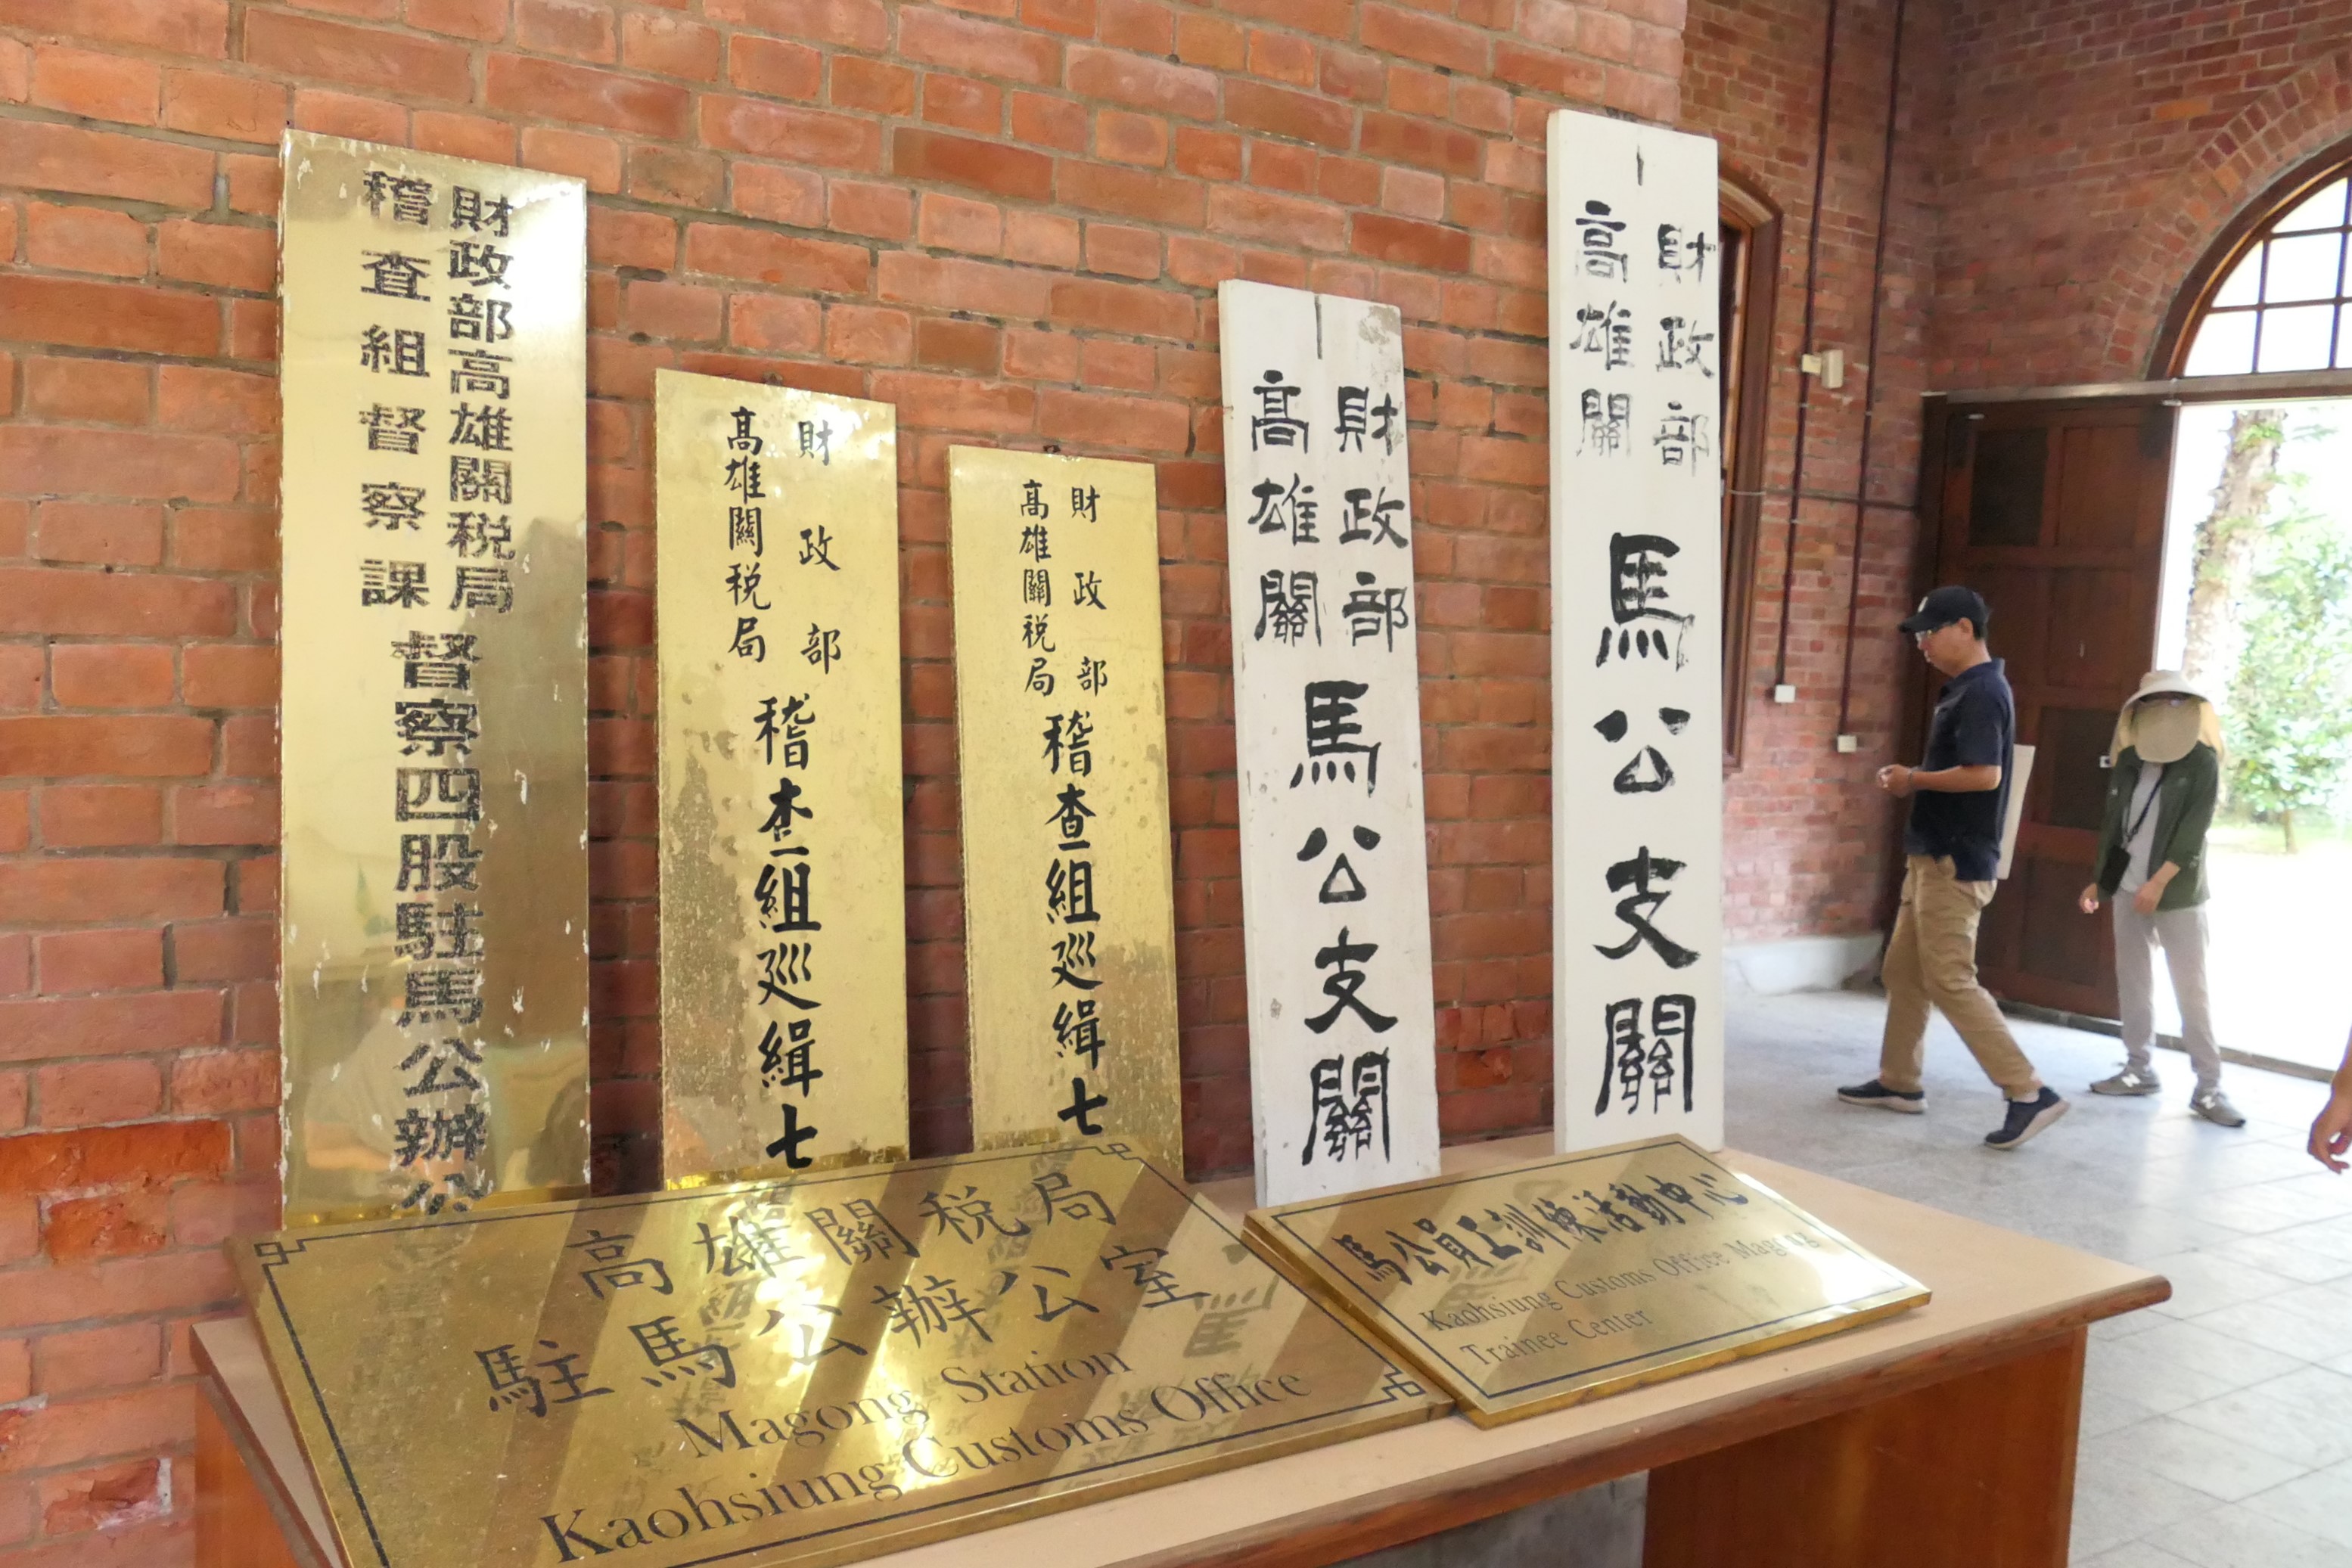 財政部高雄關稅局
稽查組督察課
督察四股駐馬公辦公
財政部
高雄關稅局
稽查組巡緝七
財政部
高雄關稅局
稽查組巡緝七
財政部
高雄關
馬公支關
財政部
高雄關
馬公支關
高雄關稅局
駐馬公辦公室
Magong Station
Kaohsiung Customs Office
馬公員工訓練活動中心
Kaohsiung Customs Office Magong
Trainee Center